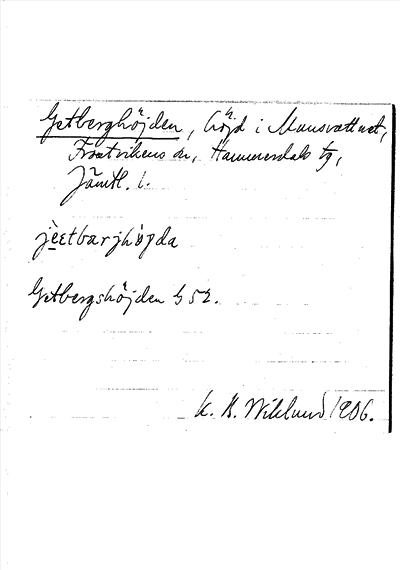 Getberghöjden, höjd i Mansvattnet,
Frostvikens sn, Hammerdals tg,
Jämtl. l.
jèεtbarjhöy̯da
Getbergshöjden G 52.
K. B. Wiklund 1906.